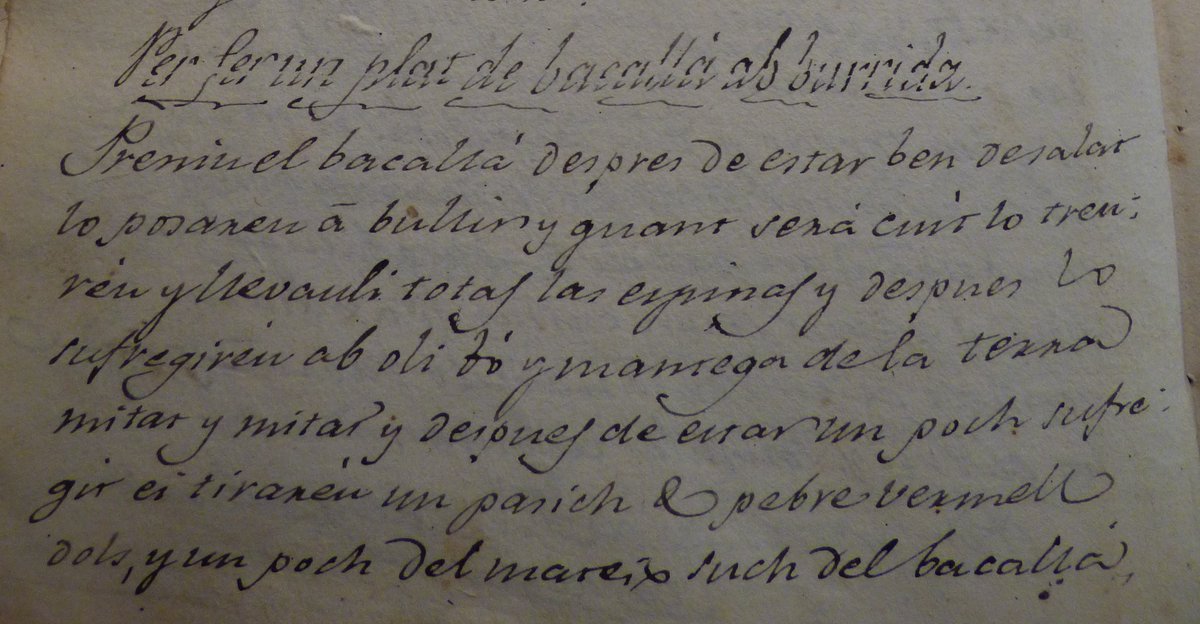 Per fer un plat de bacallá ab burrida.
Preniu el bacallá despres de estar ben desalat
lo posareu á bullir y quant será cuit lo treu:
réu y llevauli totas las espinas y despues lo
sufregiréu ab oli bó y mantega de la terra
mitat y mitat y despues de estar un poch sufre:
git ei tiraréu un pasich de pebre vermell
dols, y un poch del mareix such del bacallá,